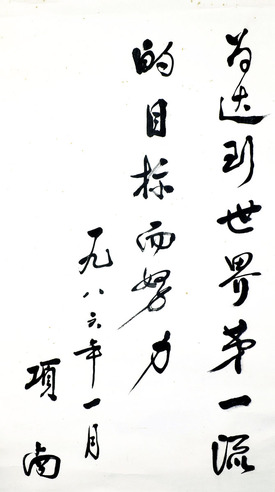 为达到世界第一流
的目标而努力
一九八六年一月
項南